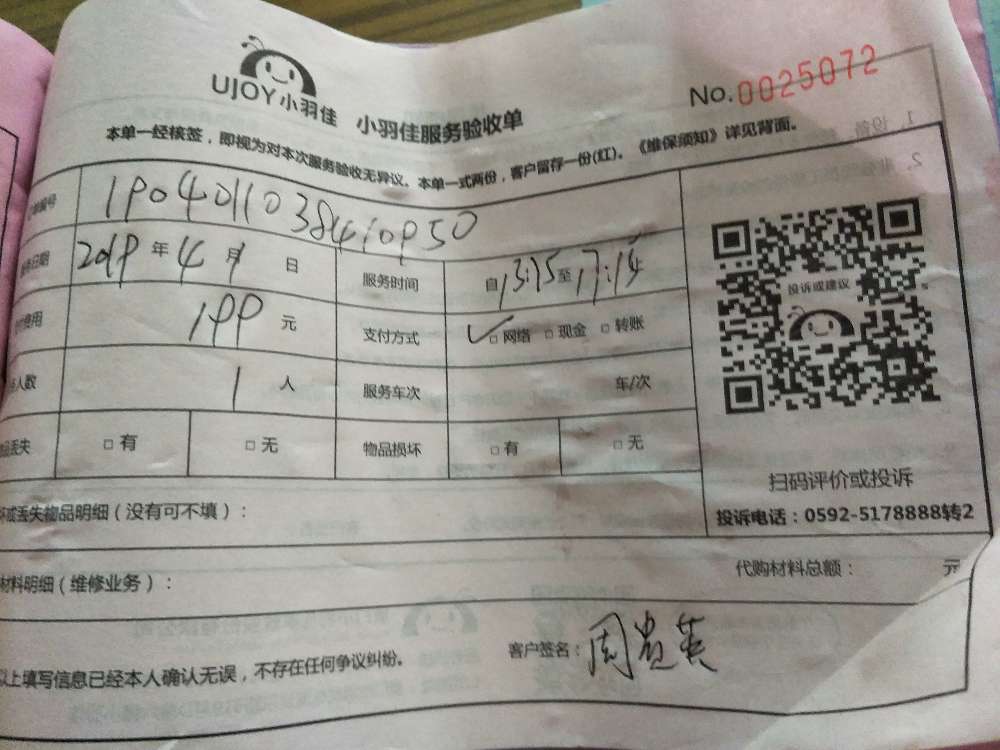 UJOY小羽佳 小羽佳服务验收单 No.0025072
本单一经核签，即视为对本次服务验收无异议。本单一式两份，客户留存一份(红)。《维保须知》详见背面。
编号 1904011038410950
日期 2019年4月 日 服务时间 自13:15至17:15
费用 199元 支付方式 ✓□网络 □现金 □转账
人数 1人 服务车次 车/次
品丢失 □有 □无 物品损坏 □有 □无
投诉或建议
扫码评价或投诉
投诉电话：0592-5178888转2
或丢失物品明细（没有可不填）：
材料明细（维修业务）： 代购材料总额： 元
以上填写信息已经本人确认无误，不存在任何争议纠纷。 客户签名：周英